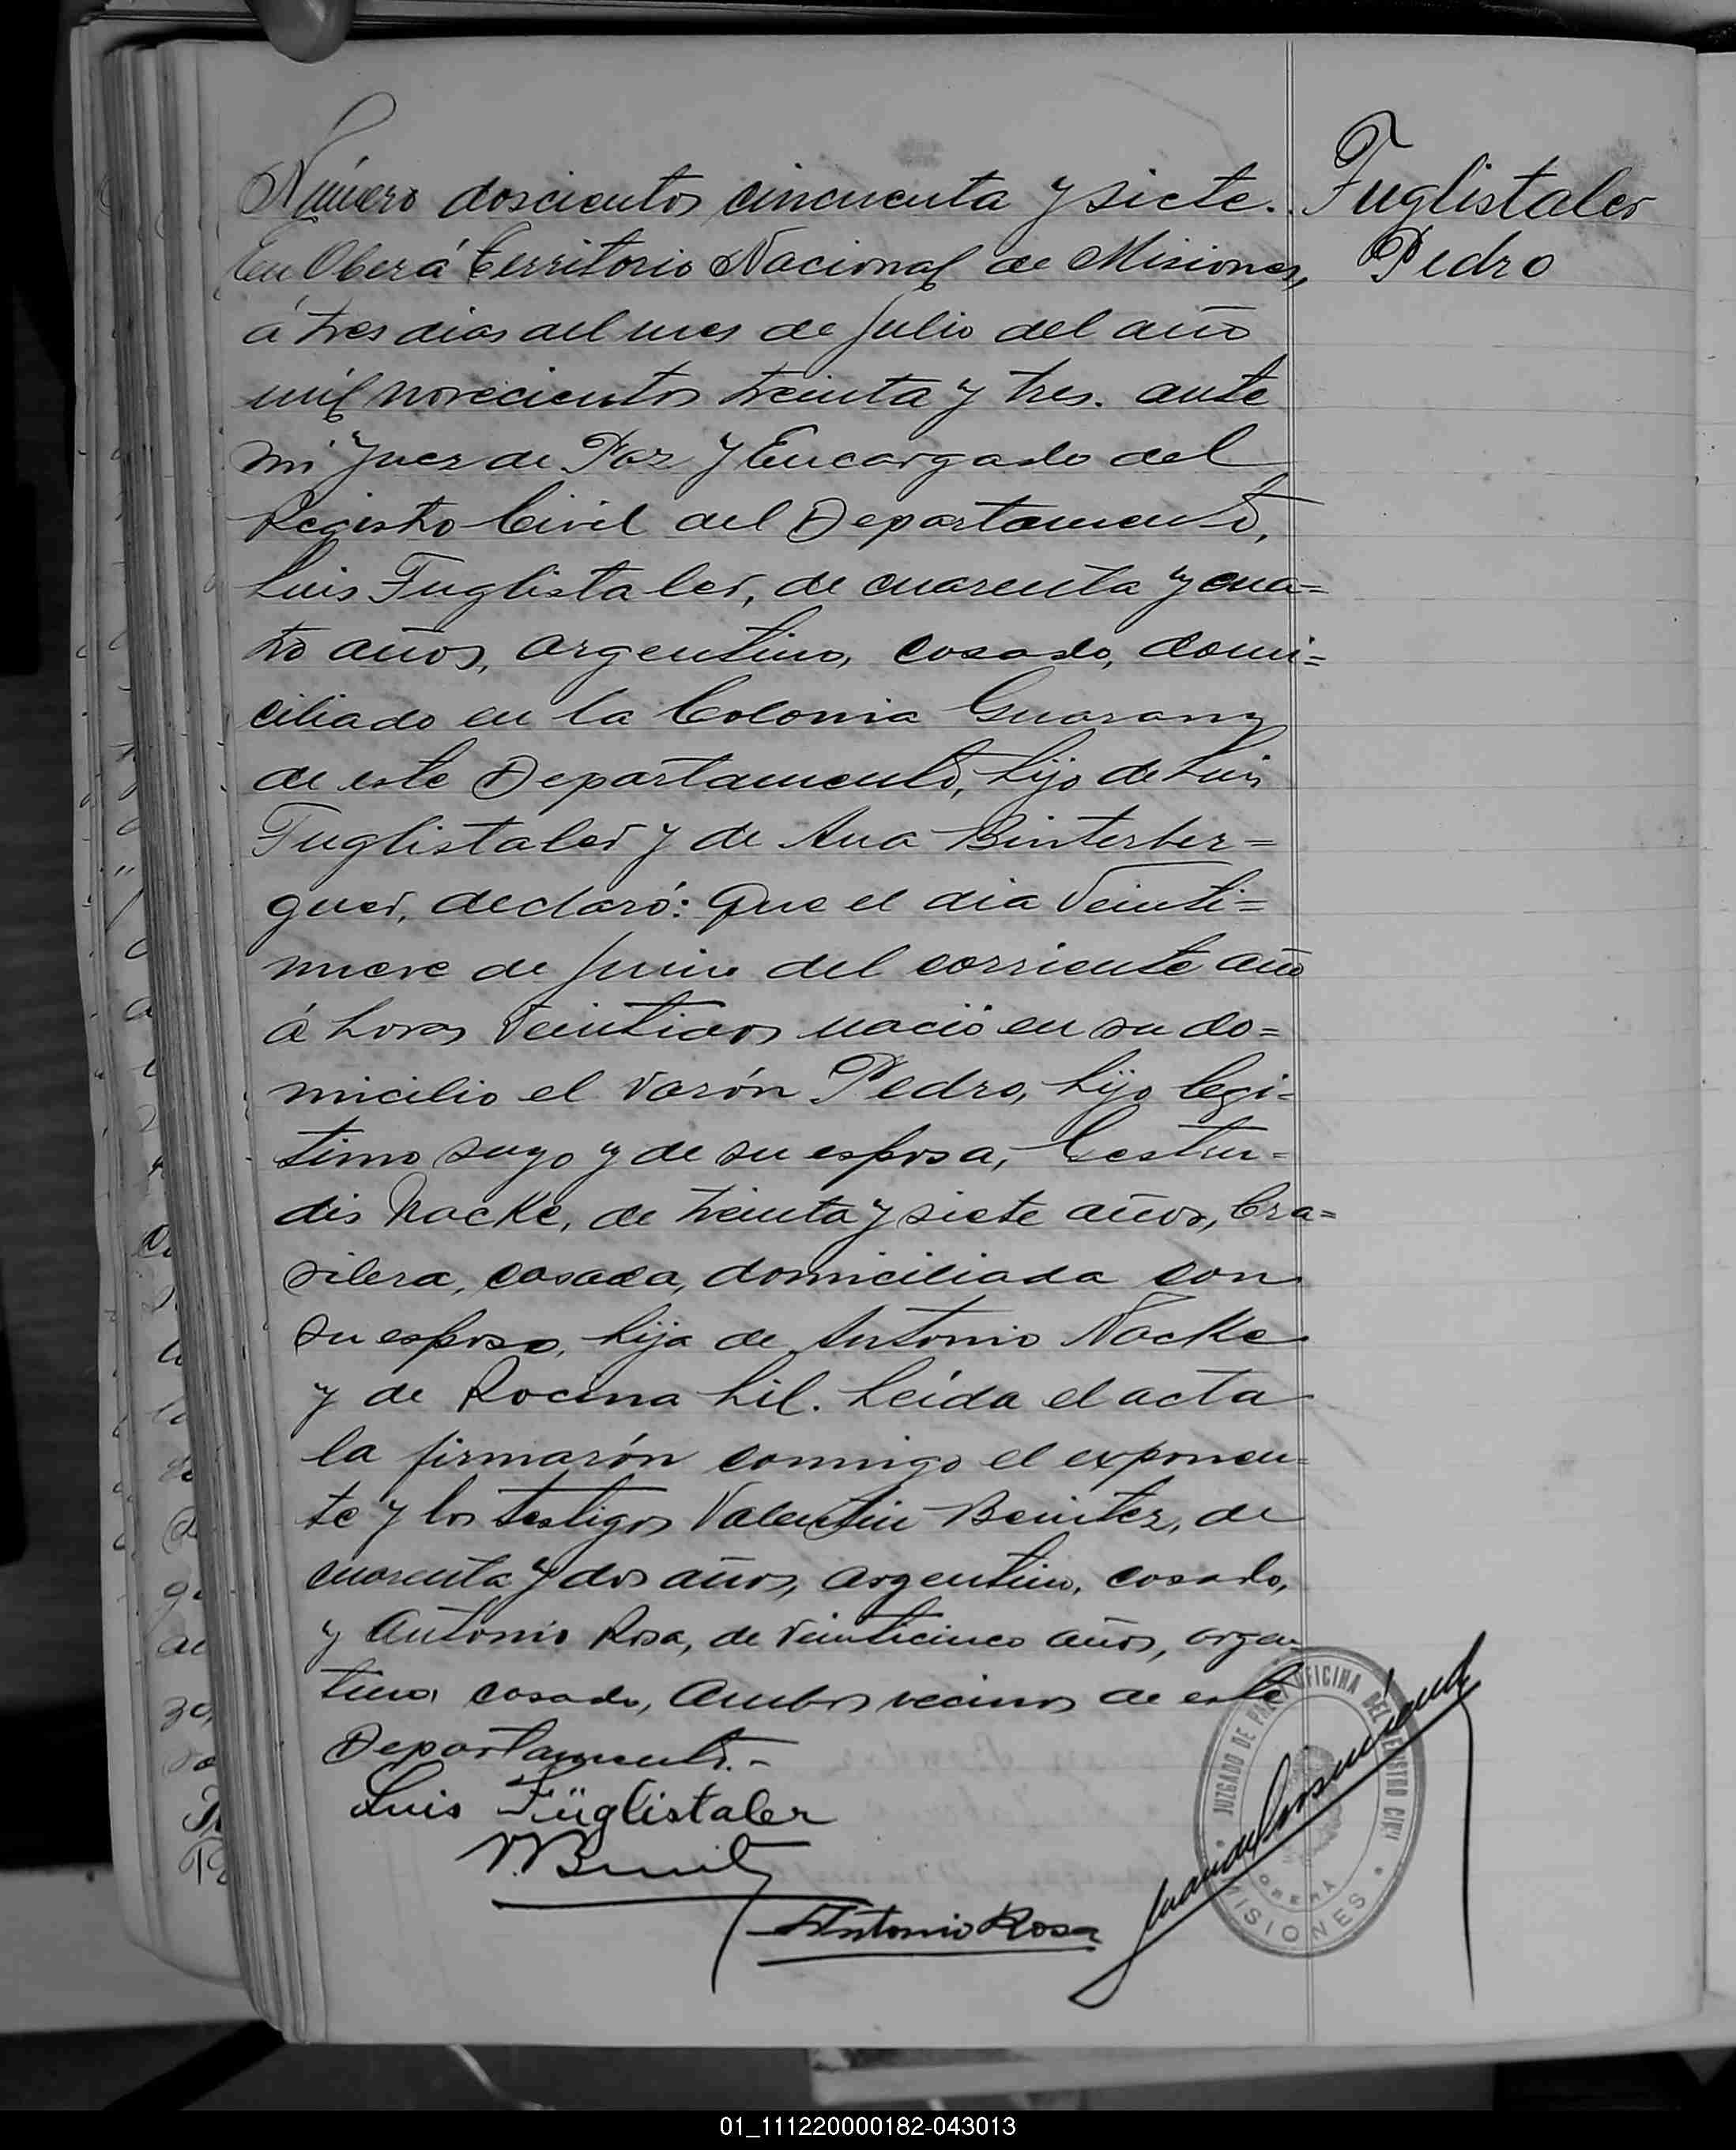 Número doscientos cincuenta y siete.
Fuglistaler
Pedro
En Oberá Territorio Nacional de Misiones,
á tres dias del mes de Julio del año
mil novecientos treinta y tres. ante
mi Juez de Paz y Encargado del
Registro Civil del Departamento,
Luis Fuglistaler, de cuarenta y cua=
tro años, argentino, casado, domi=
ciliado en la Colonia Guarany
de este Departamento, hijo de Luis
Fuglistaler y de Ana Binterber=
guer, declaró: Que el dia Veinti=
nueve de Junio del corriente año
á horas Veintidos nació en su do=
micilio el varón Pedro, hijo legi=
timo suyo y de su esposa, Gertru=
dis Nacke, de treinta y siete años, bra=
silera, casada, domiciliada con
su esposo, hija de Antonio Nacke
y de Rocina Lil. Leida el acta
la firmarón conmigo el exponen=
te y los testigos Valentin Benitez, de
cuarenta y dos años, argentino, casado,
y Antonio Rosa, de veinticinco años, argen
tino, casado, ambos vecinos de este
Departamento.-
Luis Füglistaler
V. Benitz
Antonio Rosa
JUZGADO DE PAZ OFICINA DEL REGISTRO CIVIL
OBERÁ
MISIONES
01_111220000182-043013